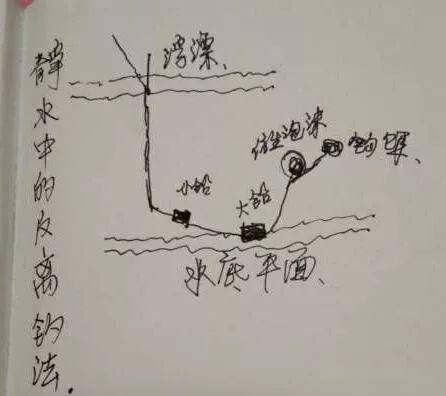 静水中的反离钓法.
浮漂、
泡沫
钩饵、
小铅
大铅
水底平面、